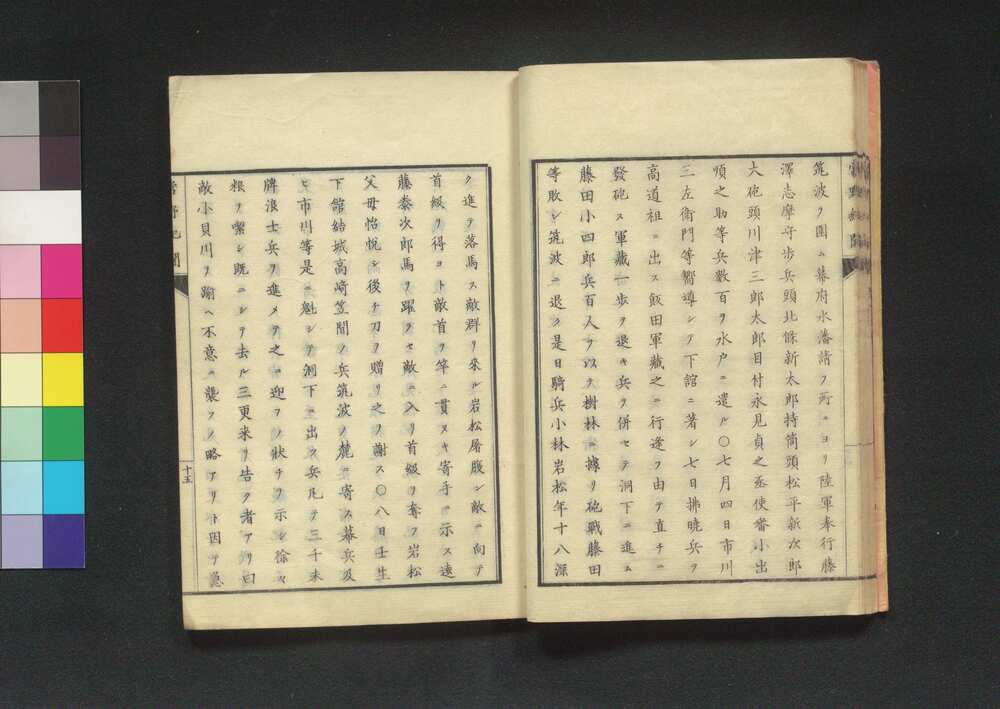 筑波ヲ圍ム幕府水藩請フ所ニヨリ陸軍奉行藤
澤志摩守步兵頭北條新太郎持筒頭松平新次郎
大砲頭川津三郎太郎目付永見貞之丞使番小出
順之助等兵數百ヲ水戸ニ遣ル〇七月四日市川
三左衛門等嚮導シテ下館ニ著シ七日拂曉兵ヲ
高道祖ニ出ス飯田軍藏之ニ行逢フ由テ直チニ
發砲ス軍藏一步ヲ退キ兵ヲ併セテ洞下ニ進ム
藤田小四郎兵百人ヲ以テ樹林ニ據リ砲戰藤田
等敗シ筑波ニ退ク是日騎兵小林岩松年十八源
ク進テ落馬ス敵群リ來ル岩松屠腹シ敵ニ向テ
首級ヲ得ヨト敵首ヲ竿ニ貫ヌキ寄手ニ示ス遠
藤泰次郎馬ヲ躍ラセ敵ニ入リ首級ヲ奪フ岩松
父母怡悅シ後チ刀ヲ贈リ之ヲ謝ス〇八日壬生
下館結城高崎笠間ノ兵筑波ノ麓ニ寄ス幕兵及
ヒ市川等是ニ魁シテ洞下ニ出ス兵凡テ三千未
牌浪士兵ヲ進メテ之ニ迎フノ狀チヲ示シ徐々
根ヲ繫シ既ニシテ去ル三更来リ告ク者アリ曰
敵小貝川ヲ踰ヘ不意ニ襲フノ略アリト因テ急
十五